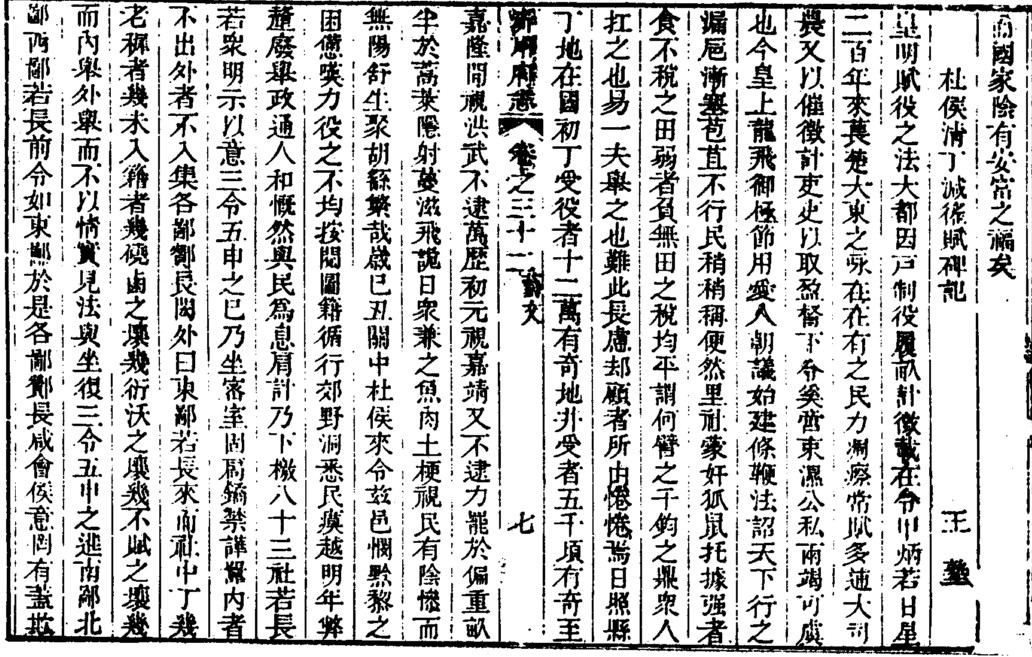 而國家陰有安富之福矣
杜侯清丁減徭賦碑記 王
皇明賦役之法大都因戶制役履畝計徵載在令甲炳若日星
二百年來萇楚大東之咏在在有之民力凋瘵常賦多逋大司
農又以催徵計吏吏以取盈督下奈奚啻束濕公私兩竭可虞
也今皇上龍飛御極節用愛人朝議始建條鞭法詔天下行之
漏巵漸塞苞苴不行民稍稍稱便然里社蒙奸狐鼠托據强者
食不稅之田弱者負無田之稅均平謂何譬之千鈞之鼎衆人
扛之也易一夫舉之也難此長慮却顧者所由惓惓焉日照縣
丁地在國初丁受役者十二萬有奇地井受者五千頃有奇至
府志 卷之三十二 藝文 七
嘉隆間視洪武不逮萬歷初元視嘉靖又不逮力罷於偏重畝
半於蒿萊隱射蔓滋飛詭日衆兼之魚肉土梗視民有陰慘而
無陽舒生聚胡繇繁哉歲已丑關中杜侯來令玆邑憫黔黎之
困憊嘆力役之不均按閱圖籍循行郊野洞悉民瘼越明年弊
釐廢舉政通人和慨然與民爲息肩計乃下檄八十三社若長
若衆明示以意三令五申之已乃坐密室固扄鐍禁譁闠內者
不出外者不入集各鄙酇長閾外曰東鄙若長來而社中丁幾
老穉者幾未入籍者幾磽鹵之壤幾衍沃之壤幾不賦之壤幾
而內舉外舉而不以情實見法與坐復三令五申之逓南鄙北
鄙西鄙若長前令如東鄙於是各鄙酇長咸會侯意罔有蓋欺